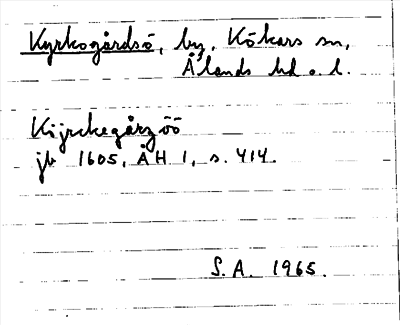 Kyrkogårdsö, by, Kökars sn,
Ålands hd o. l.
Kijrckegårzöö
jb 1605, ÅH 1, s. 414.
S.A. 1965.